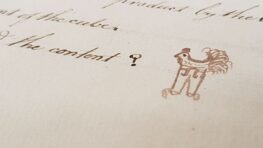 produced by the
of the cube.
the content ?